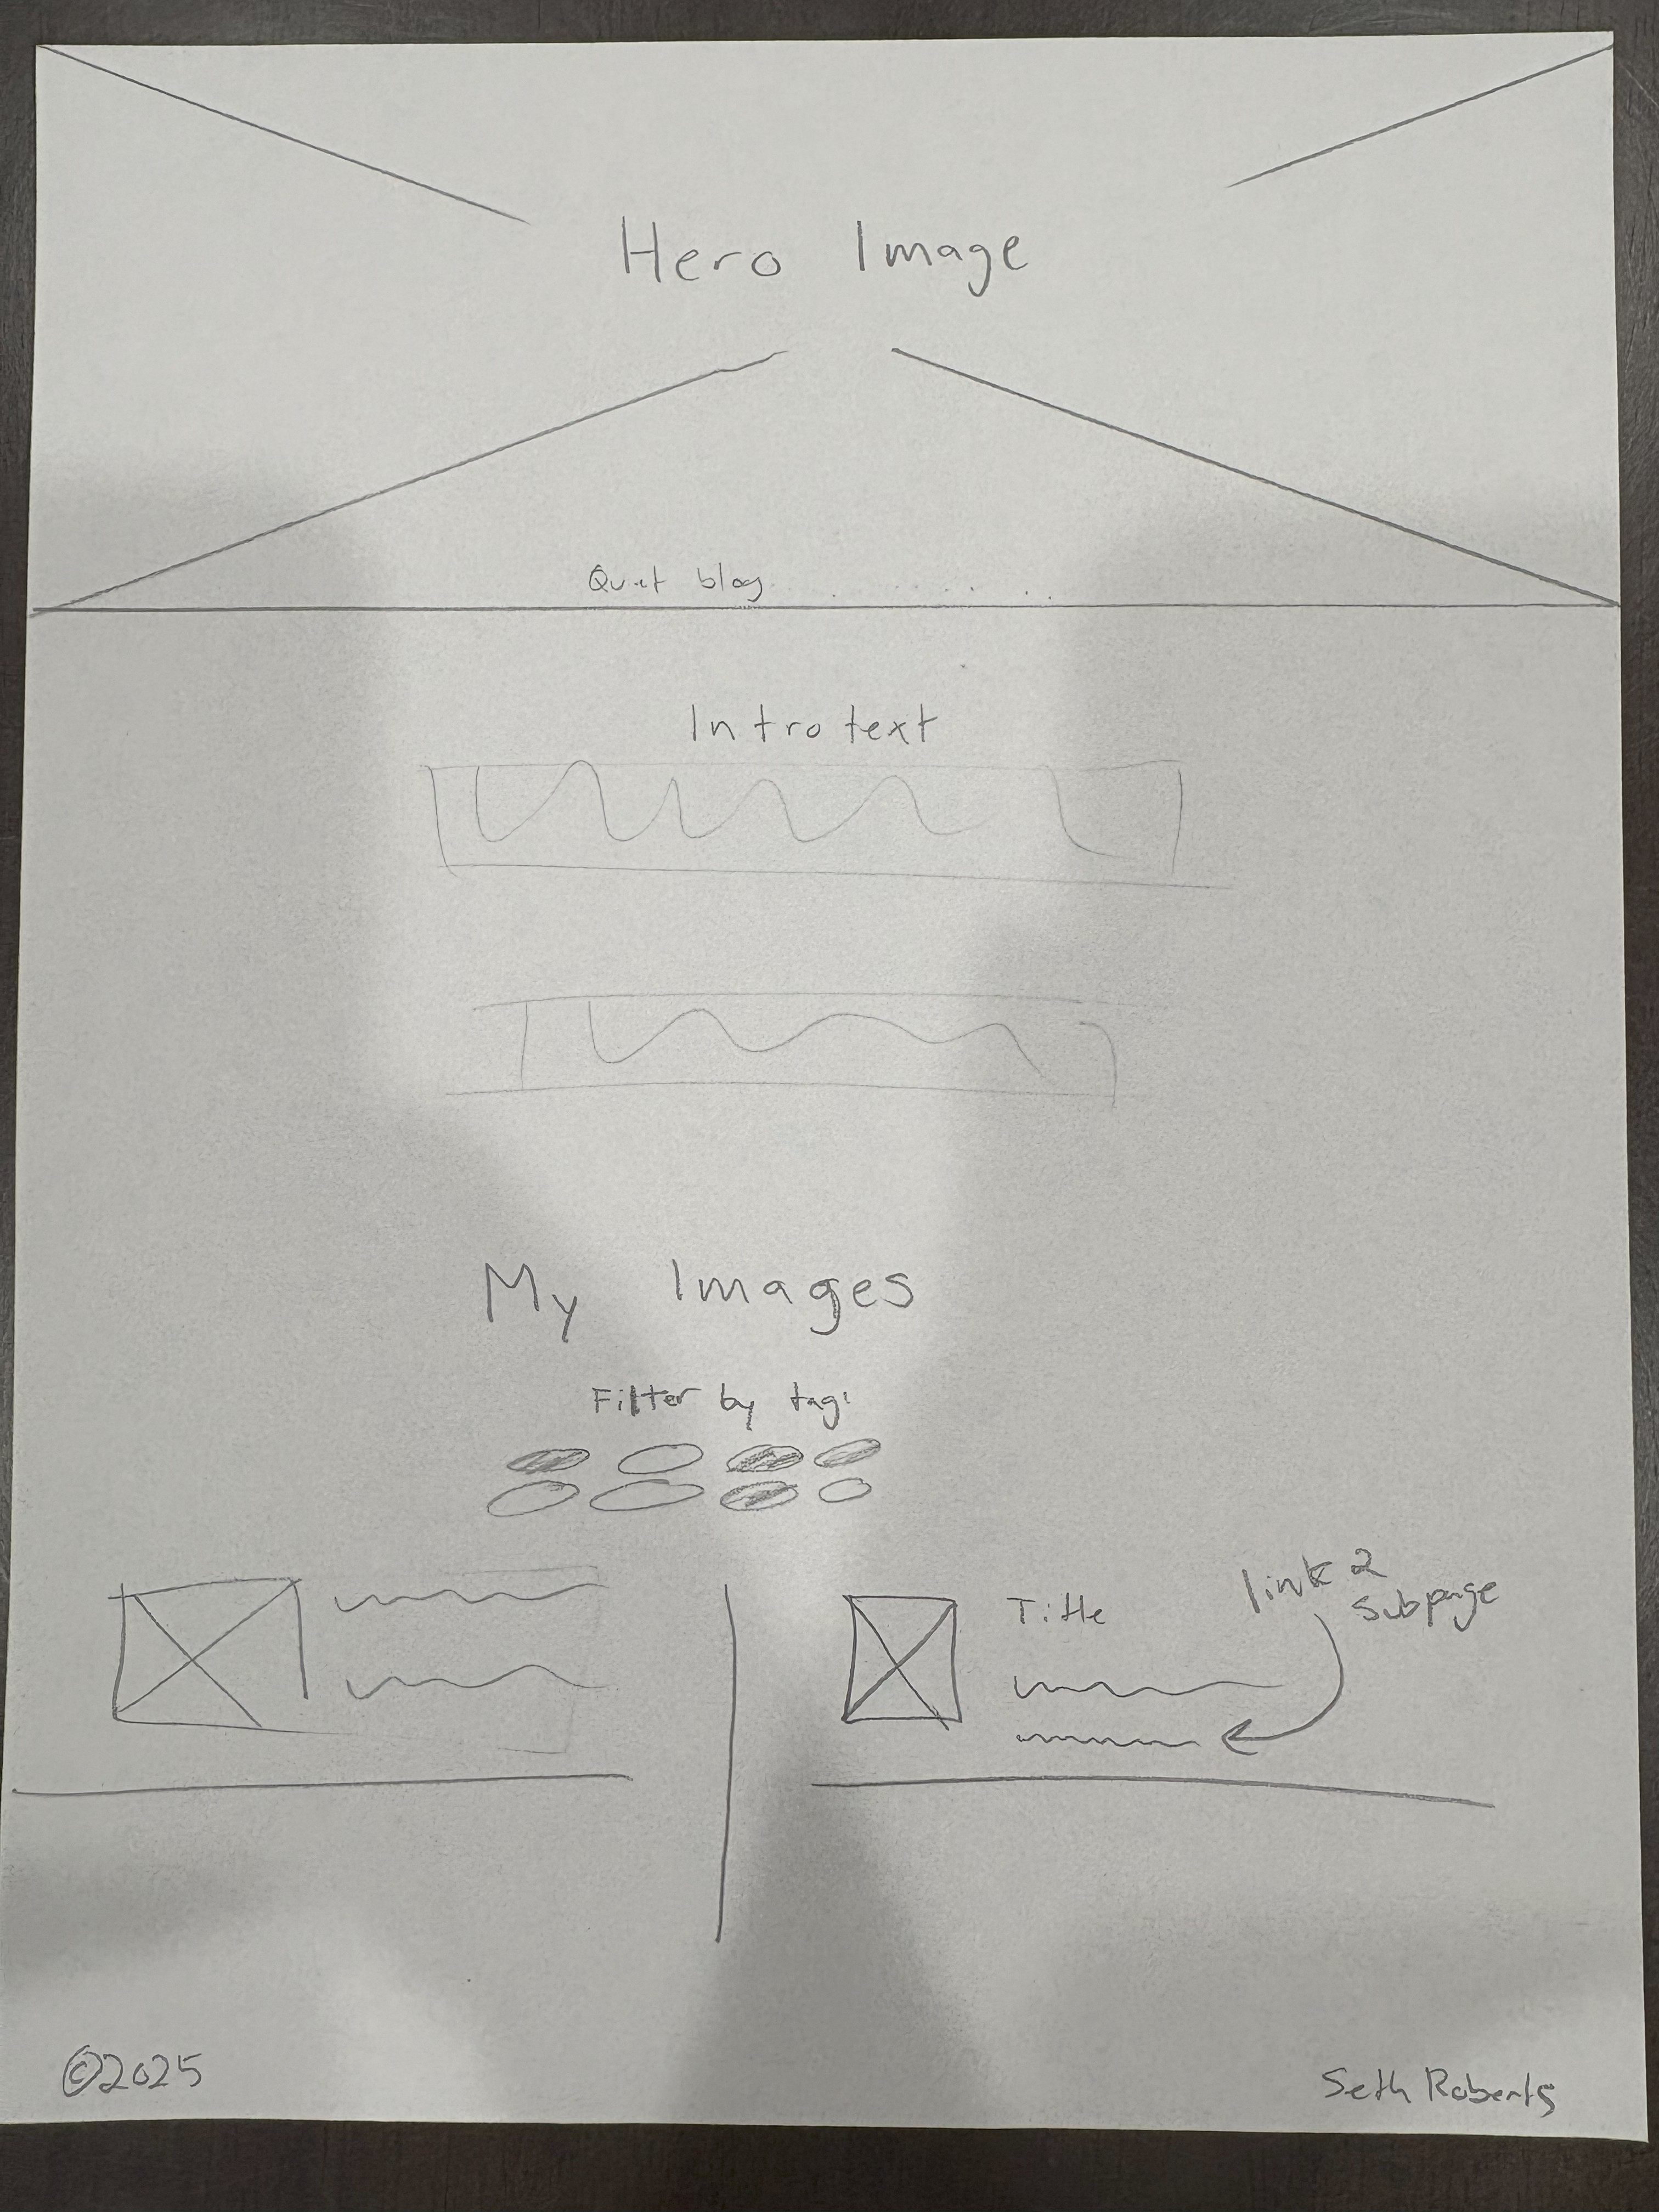 Hero Image
Quiet blog
Intro text
My Images
Filter by tag:
Title
link 2
subpage
©2025
Seth Roberts